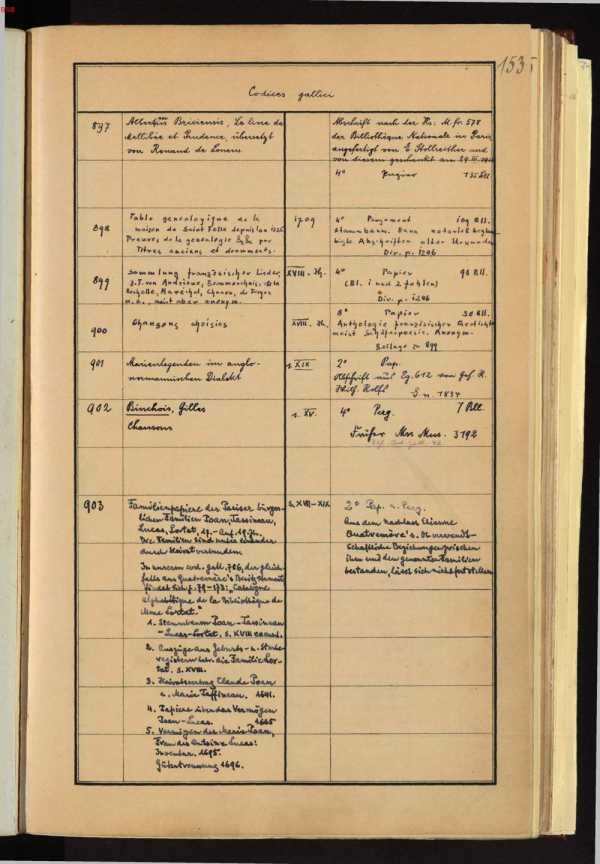 153
Codices gallici
897
Albertus Briciensis, La livre de
Mellibée et Prudence, übersetzt
von Renaud de Louens
Abschrift nach der Hs: M. fr. 578
der Bibliothèque Nationale in Paris
angefertigt von E Stollreither und
von diesem geschenkt am
4° Papier 135 Bll
898
Table genealogique de la
maison de Saint Felix depuis lan
Preuves de la genealogie par
Titres anciens et documents.
1709
4° Pergament 109 Bll.
Stammbaum. Dann notariell beglau-
bigte Abschriften alter Urkunden
Div. p. 1206
899
Sammlung französischer Lieder,
z.T. von Andrieux, Beaumarchais, de la
Rochelle, Maréchal,
u.a., meist aber anonym.
XVIII. Jh.
4° Papier 98 Bll.
(Bl. 1 und 2 fehlen)
Div. p. 1206
900
Chansons choisies
XVIII. Jh.
8° Papier 30 Bll.
Anthologie französischer Gedichte
meist Schäferpoesie. Anonym.
Beilage zu 899
901
Marienlegenden im anglo-
normannischen Dialekt
s. XIX
2° Pap.
Abschrift aus Eg. 612 von Hof. R.
Wilh. Rolfs
902
Binchois, Gilles
Chansons
s. XV.
4° Perg. 7 Bll.
Früher Mus. Mss. 3192
903
Familienpapiere der Pariser bürger-
lichen Familien Poan, Tassineau,
Lucas, Lortat, 17.-Anf. 19. Jh.
Die Familien sind unter einander
durch Heirat verbunden
In unserem cod. gall. 706, der gleich-
falls aus Quatremère's Besitz stammt
findet sich f. 79-173: „Catalogue
alphabétique de la Bibliothèque de
Mme Lortat."
1. Stammbaum Poan-Tassineau
-Lucas-Lortat. s. XVIII
2. Auszüge aus Geburts- u. Sterbe-
registern betr. die Familie Lor-
tat. s. XVIII.
3. Heiratsvertrag Claude Poan
u. Marie Taffineau. 1641.
4. Papiere über das Vermögen
Poan-Lucas. 1665
5. Vermögen der Marie Poan,
Frau des Antoine Lucas:
Inventar. 1695.
Gütertrennung 1696.
s. XVII-XIX
2° Pap. u. Perg.
Aus dem Nachlass Etienne
Quatremère's. Ob verwandt-
schaftliche Beziehungen zwischen
ihm und den genannten Familien
bestanden, lässt sich nicht feststellen